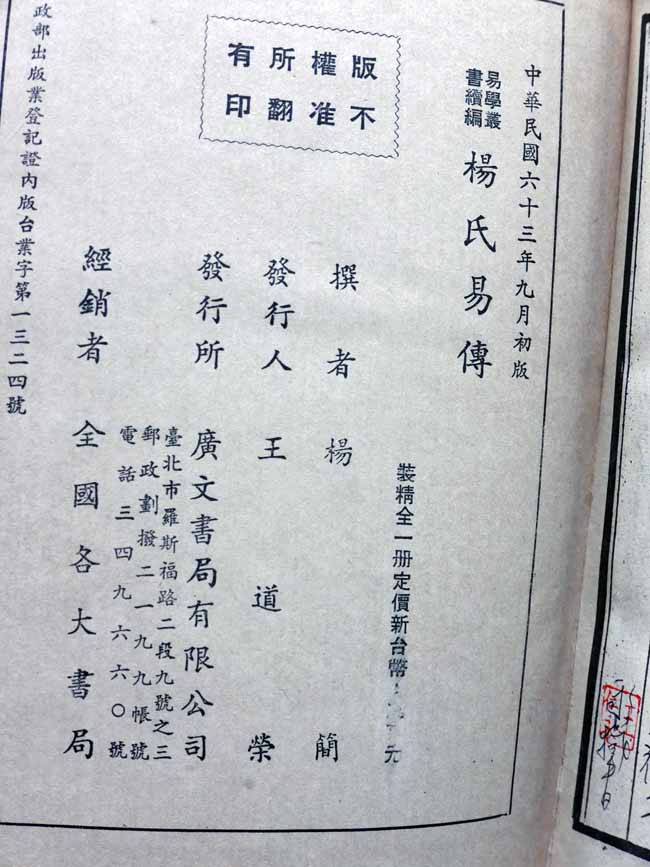 中華民國六十三年九月初版
易學叢
書續編
楊氏易傳
版權所有
不准翻印
裝精全一册定價新台幣 元
撰者 楊簡
發行人 王道榮
發行所 廣文書局有限公司
臺北市羅斯福路二段九號之三
郵政劃撥二一九九帳號
電話三四九六六〇號
經銷者 全國各大書局
政部出版業登記證內版台業字第一三二四號